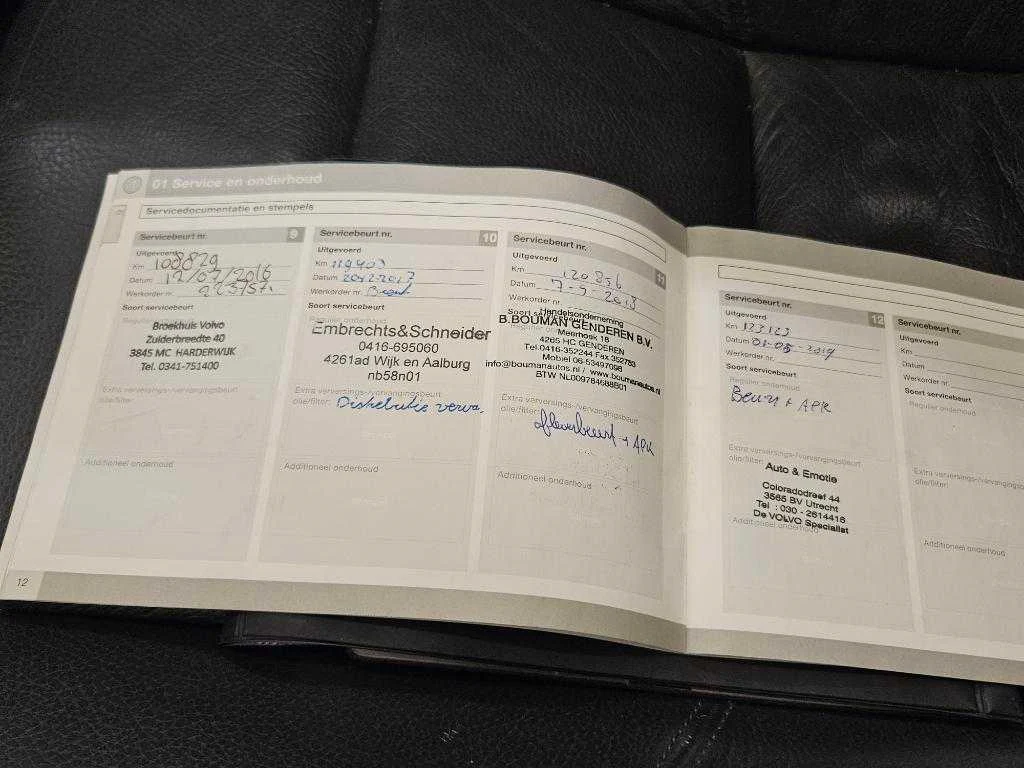 01 Service en onderhoud
Servicedocumentatie en stempels
Servicebeurt nr. 9
Uitgevoerd
Km 108829
Datum 12/07/2016
Werkorder nr.
Soort servicebeurt
Regulier onderhoud
Broekhuis Volvo
Zuiderbreedte 40
3845 MC HARDERWIJK
Tel. 0341-751400
Extra verversings-/vervangingsbeurt
olie/filter:
Additioneel onderhoud
12
Servicebeurt nr. 10
Uitgevoerd
Km 119403
Datum
Werkorder nr.
Soort servicebeurt
Regulier onderhoud
Embrechts&Schneider
0416-695060
4261ad Wijk en Aalburg
nb58n01
Extra verversings-/vervangingsbeurt
olie/filter: Distributie verva.
Additioneel onderhoud
Servicebeurt nr. 11
Uitgevoerd
Km 120856
Datum 7-9-2018
Werkorder nr.
Soort servicebeurt
Handelsonderneming
B.BOUMAN GENDEREN B.V.
Meerhoek 18
4265 HC GENDEREN
Tel.0416-352244 Fax 352783
Mobiel 06-53497098
info@boumanautos.nl / www.boumanautos.nl
BTW NL009784688B01
Extra verversings-/vervangingsbeurt
olie/filter: afleverbeurt + APK
Additioneel onderhoud
Servicebeurt nr. 12
Uitgevoerd
Km 123123
Datum 01-05-2019
Werkorder nr.
Soort servicebeurt
Regulier onderhoud
Beurt + APK
Extra verversings-/vervangingsbeurt
olie/filter:
Auto & Emotie
Coloradodreef 44
3565 BV Utrecht
Tel : 030 - 2614418
De VOLVO Specialist
Additioneel onderhoud
Servicebeurt nr.
Uitgevoerd
Km
Datum
Werkorder nr.
Soort servicebeurt
Regulier onderhoud
Extra verversings-/vervangingsb
olie/filter:
Additioneel onderhoud